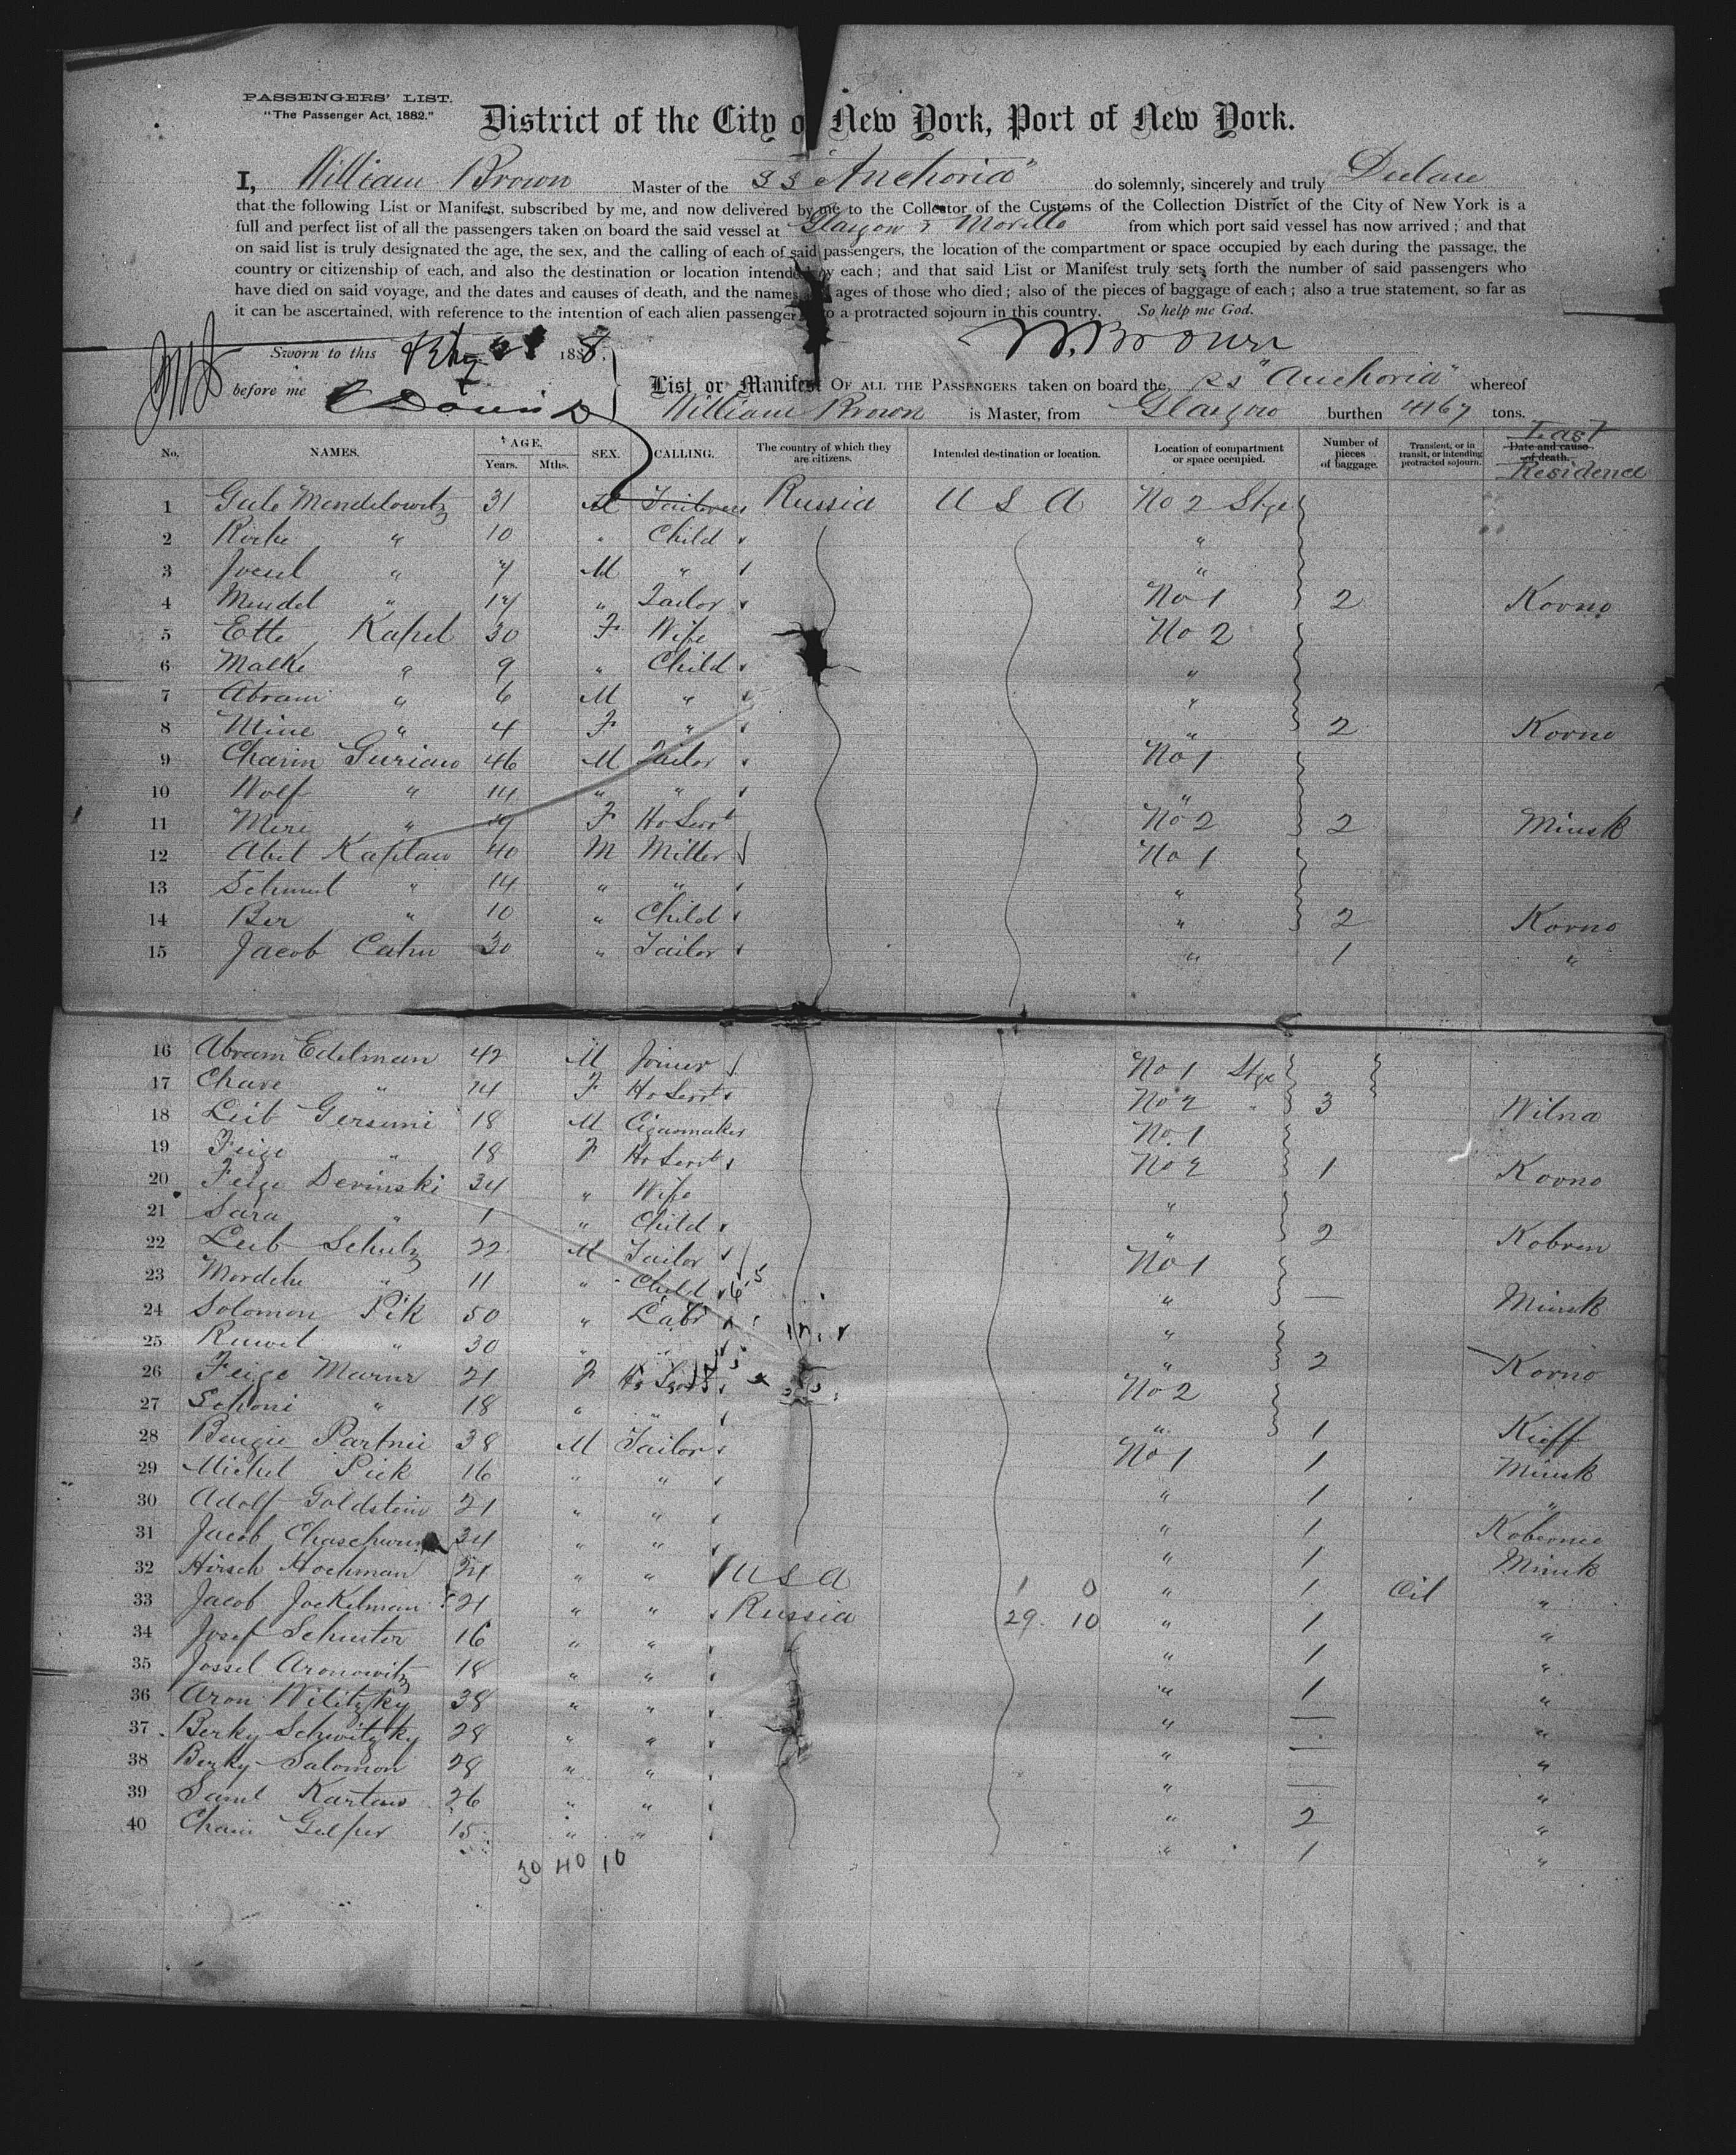 PASSENGERS' LIST.
"The Passenger Act, 1882."
District of the City of New York, Port of New York.
I, William Brown Master of the SS "Anchoria" do solemnly, sincerely and truly Declare
that the following List or Manifest, subscribed by me, and now delivered by me to the Collector of the Customs of the Collection District of the City of New York is a
full and perfect list of all the passengers taken on board the said vessel at Glasgow & Moville from which port said vessel has now arrived; and that
on said list is truly designated the age, the sex, and the calling of each of said passengers, the location of the compartment or space occupied by each during the passage, the
country or citizenship of each, and also the destination or location intended by each; and that said List or Manifest truly sets forth the number of said passengers who
have died on said voyage, and the dates and causes of death, and the names and ages of those who died; also of the pieces of baggage of each; also a true statement, so far as
it can be ascertained, with reference to the intention of each alien passenger to a protracted sojourn in this country. So help me God.
W. Brown
Sworn to this 1888.
before me
List or Manifest OF ALL THE PASSENGERS taken on board the SS "Anchoria" whereof
William Brown is Master, from Glasgow burthen 4167 tons.
No. NAMES. AGE. Years. Mths. SEX. CALLING. The country of which they are citizens. Intended destination or location. Location of compartment or space occupied. Number of pieces of baggage. Transient, or in transit, or intending protracted sojourn. Date and cause of death. Last Residence
1 Gule Mendelowitz 31 M Tailoress Russia U S A No 2 Stge
2 Rocke " 10 " Child "
3 Jossel " 7 M " "
4 Mendel " 17 " Tailor No 1 2 Kovno
5 Ette Kapel 30 F Wife No 2
6 Malke " 9 " Child "
7 Abram " 6 M " "
8 Mine " 4 F " " 2 Kovno
9 Chaim Gurian 46 M Tailor No 1
10 Wolf " 14 " " "
11 Mere " F Ho Servt No 2 2 Minsk
12 Abel Kaplan 40 M Miller No 1
13 Schmul " 14 " " "
14 Ber " 10 " Child " 2 Kovno
15 Jacob Cahn 30 " Tailor " 1 "
16 Abram Edelman 42 M Joiner No 1 Stge
17 Chave " 14 F Ho Servt No 2 " 3 Wilna
18 Leib Gersuni 18 M Cigarmaker No 1
19 Feige " 18 F Ho Servt No 2 1 Kovno
20 Feige Devinski 34 " Wife "
21 Sara " 1 " Child " 2 Kobren
22 Leib Schulz 22 M Tailor No 1
23 Mordche " 11 " Child " — Minsk
24 Solomon Pik 50 " Labr "
25 Ruwel " 30 " " " 2 Kovno
26 Feige 21 F Ho Servt No 2
27 Schoni " 18 " " " 1 Kieff
28 Partnie 38 M Tailor No 1 1 Minsk
29 Michel Pick 16 " " " 1 "
30 Adolf Goldstein 21 " " " 1
31 Jacob 34 " " " 1 Minsk
32 Hirsch Hochman 24 " " U S A 1 0 " 1 Cit "
33 Jacob Jockelman 21 " " Russia 29. 10 " 1 "
34 Josef Schuster 16 " " " 1 "
35 Jossel Aronowitz 18 " " " 1 "
36 Aron Wilitzky 38 " " " — "
37 Berky Schwitzky 28 " " " — "
38 Berky Salomon 28 " " " — "
39 Saml Kartan 26 " " " 2 "
40 Chaim Gelfer 15 " " " 1 "
30 40 10